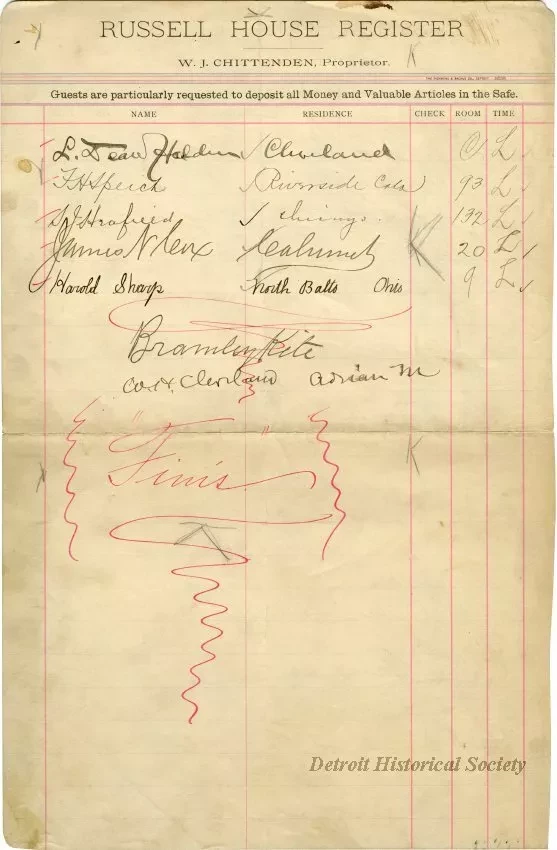 RUSSELL HOUSE REGISTER
W. J. CHITTENDEN, Proprietor.
Guests are particularly requested to deposit all Money and Valuable Articles in the Safe.
NAME RESIDENCE CHECK ROOM TIME
L. Dean Holden Cleveland L
F H Speich Riverside Cala 93 L
132 L
James N Cox Calumet 20 L
Harold Sharp North Balto Ohio 9 L
Bramley Kite
Cleveland Adrian M
"Finis"
Detroit Historical Society